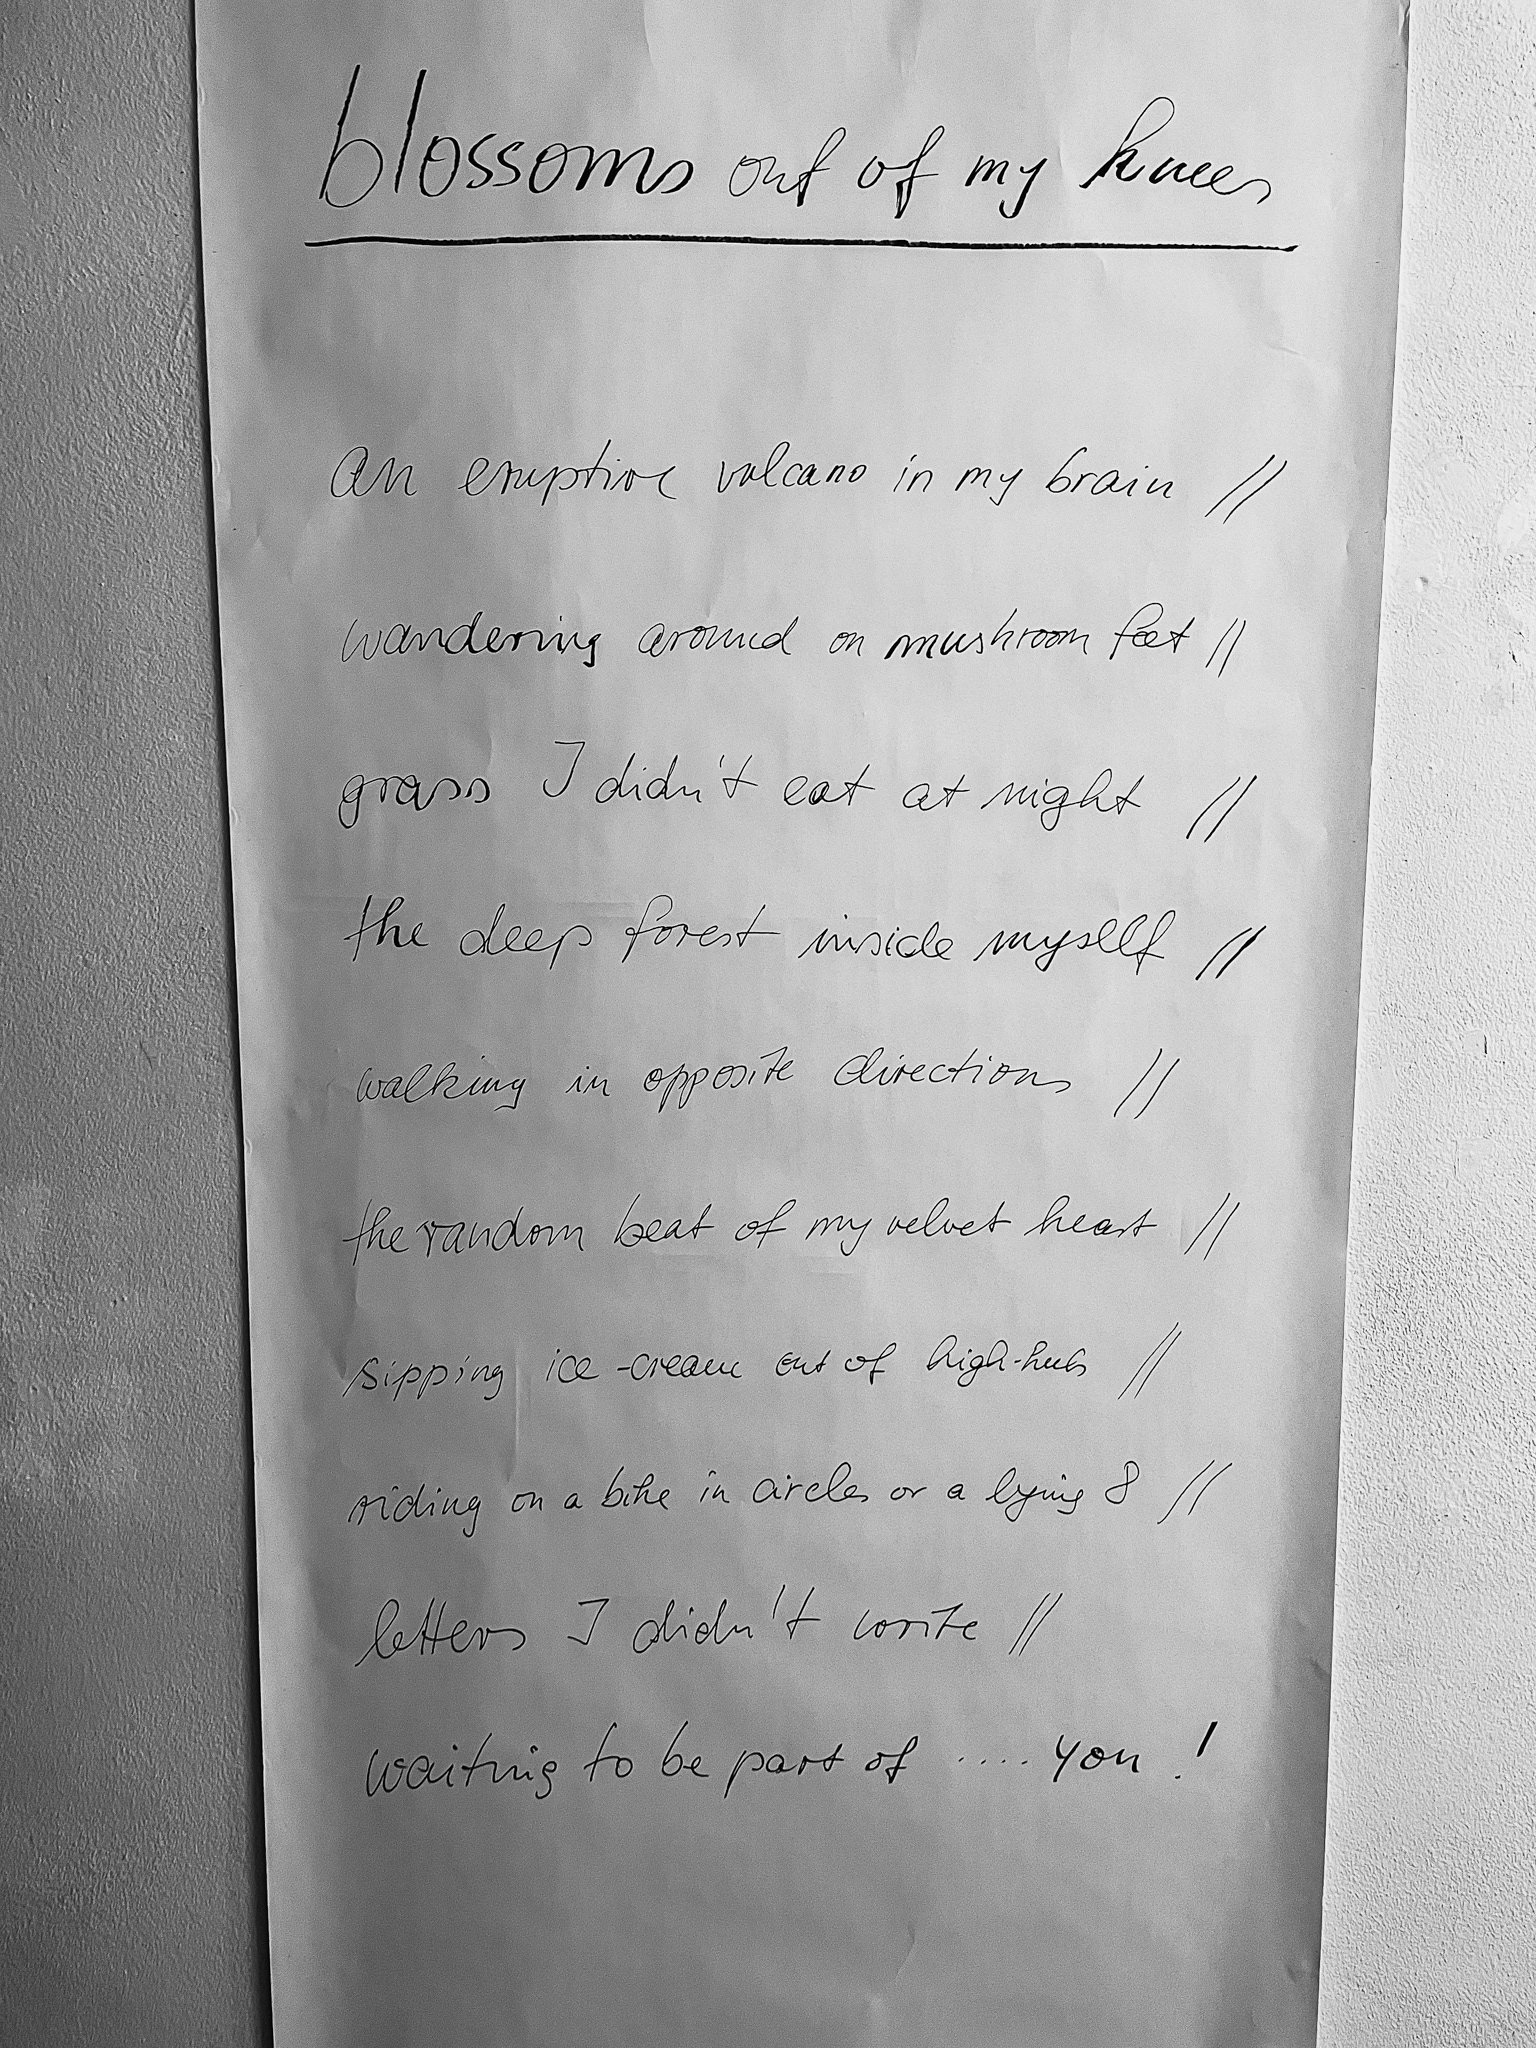 blossoms out of my knees
an eruptive volcano in my brain //
wandering around on mushroom feet //
grass I didn't eat at night //
the deep forest inside myself //
walking in opposite directions //
the random beat of my velvet heart //
sipping ice-cream out of high-heels //
riding on a bike in circles or a lying 8 //
letters I didn't write //
waiting to be part of .... you !